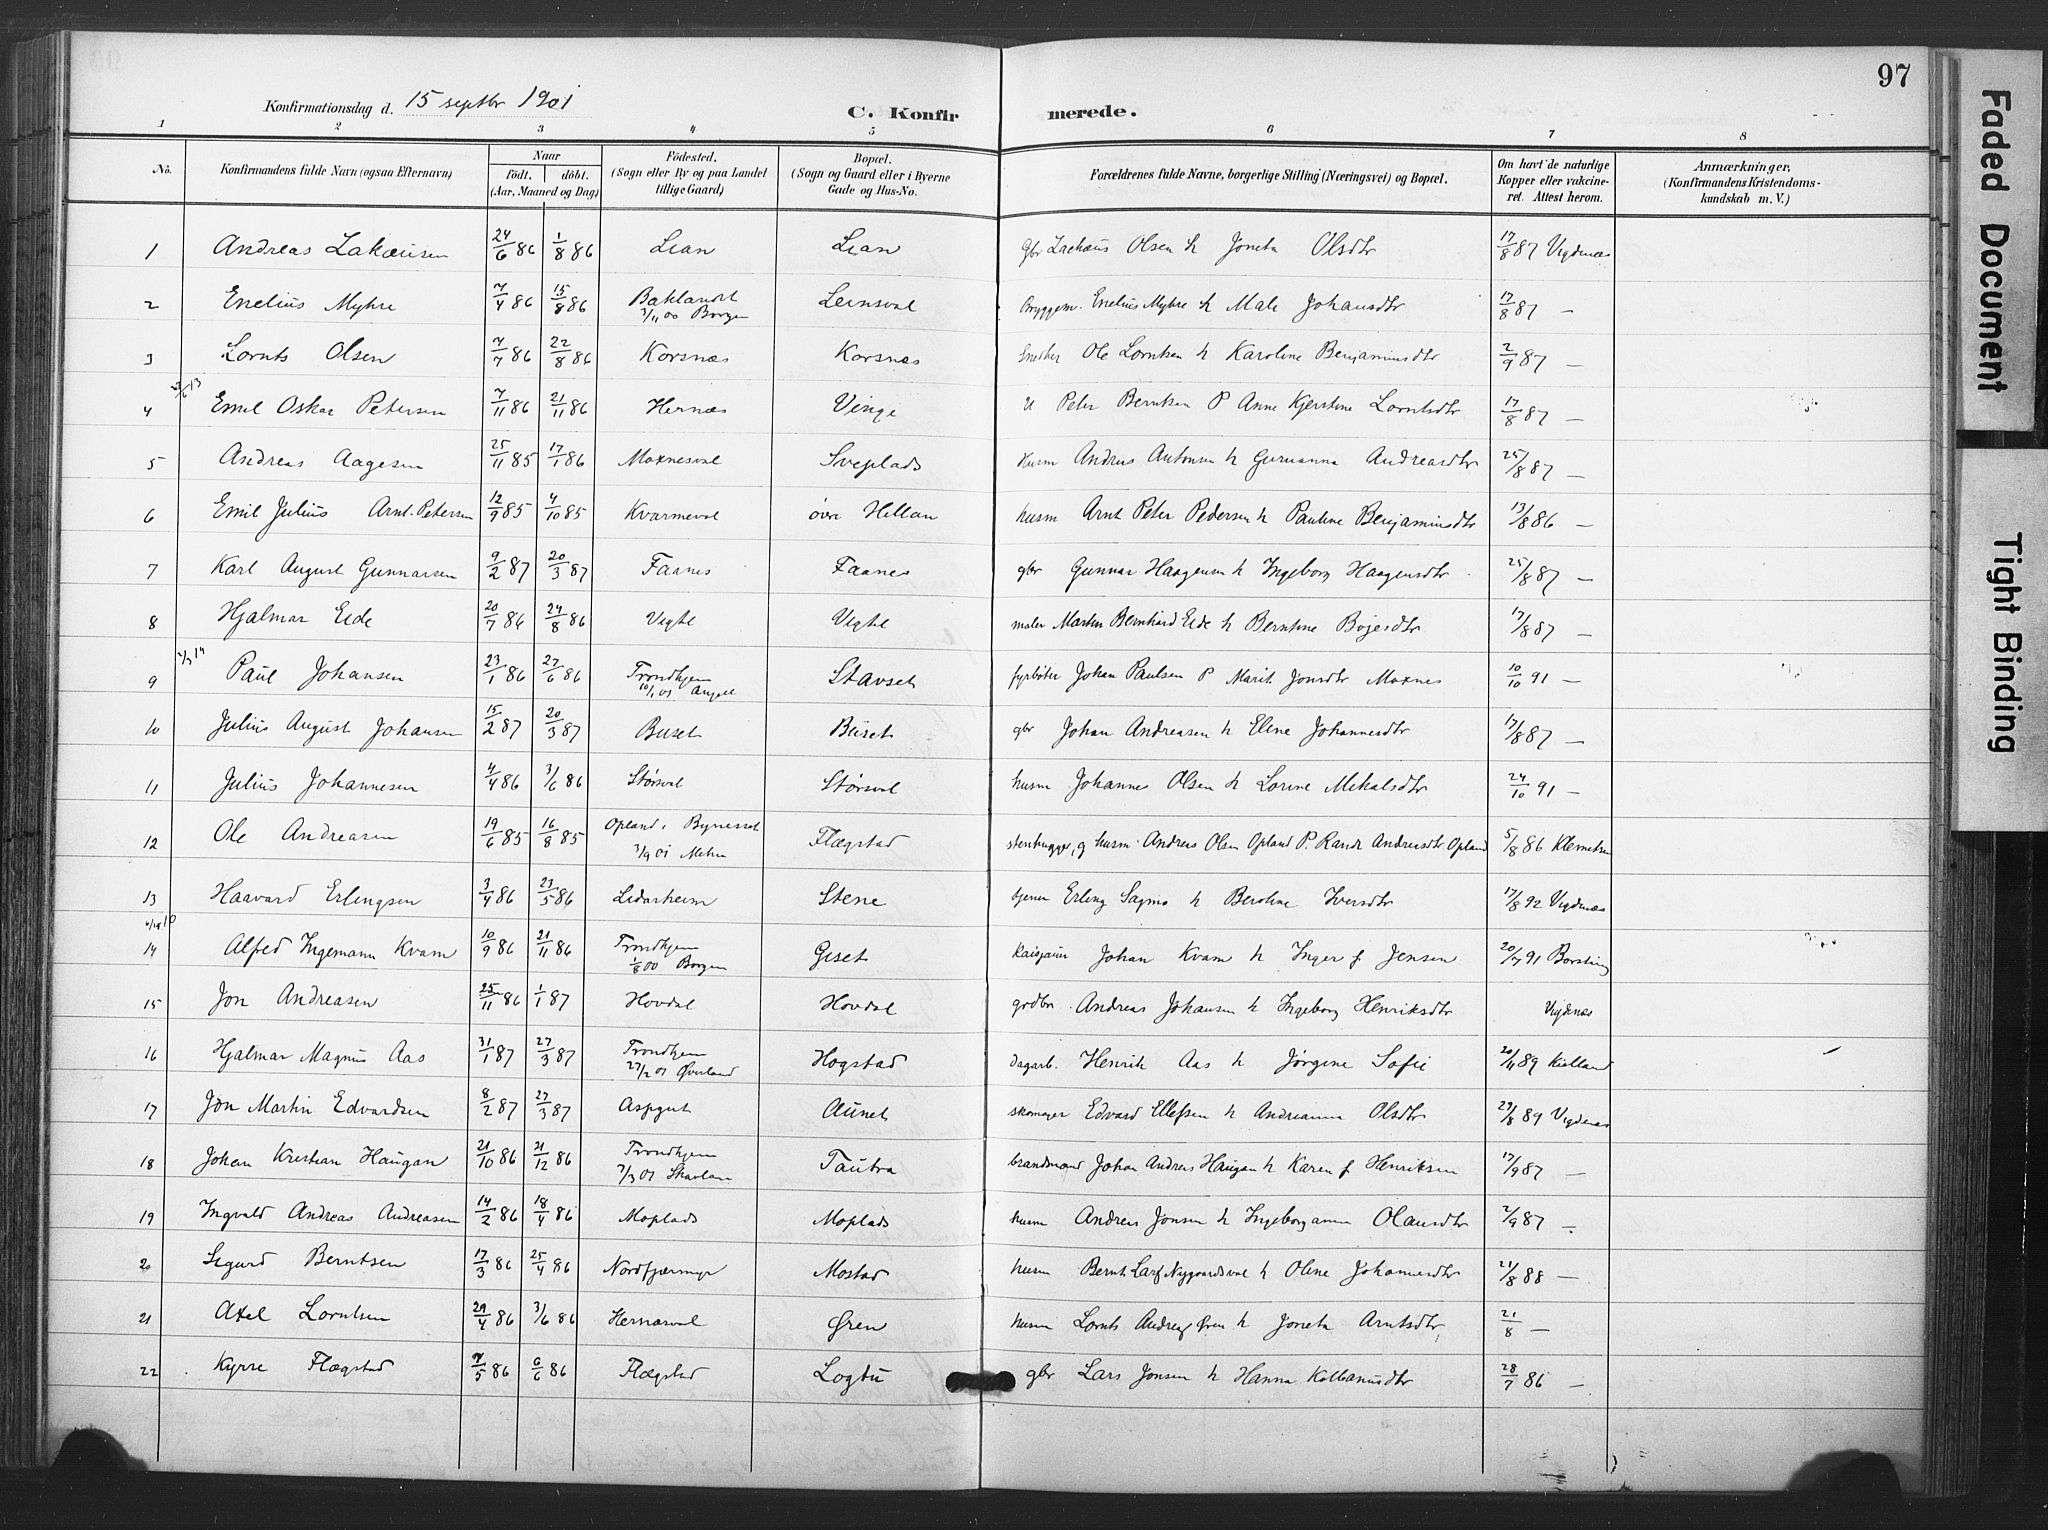 97
Konfirmationsdag d. 15 septbr 1901
C. Konfirmerede.
1 2 3 4 5 6 7 8
No. Konfirmandens fulde Navn (ogsaa Efternavn) Naar födt. döbt. (Aar, Maaned og Dag) Födested. (Sogn eller By og paa Landet tillige Gaard) Bopæl. (Sogn og Gaard eller i Byerne Gade og Hus-No. Forældrenes fulde Navne, borgerlige Stilling (Næringsvei) og Bopæl. Om havt de naturlige Kopper eller vakcineret. Attest herom. Anmærkninger, (Konfirmandens Kristendomskundskab m. V.)
1 Andreas Zakæusen 24/6 86 1/8 86 Lian Lian gbr Zachæus Olsen h Joneta Olsdtr 17/8 87 Vigdenæs
2 Enelius Myhre 7/4 86 15/8 86 Baklandet 3/11 00 Borgen Leinsval Bryggem. Enelius Myhre h Male Johansdtr 17/8 87 —
3 Lornts Olsen 7/7 86 22/8 86 Korsnæs Korsnæs Snedker Ole Lorntsen h Karoline Benjaminsdtr 2/9 87 —
4 Emil Oskar Petersen 7/11 86 21/11 86 Hernæs Vinge U Peter Berntsen P Anne Kjerstine Lorntsdtr 17/8 87 —
5 Andreas Aagesen 25/11 85 17/1 86 Moxnesval Sveplads husm Andreas Antonsen h Gurianna Andreasdtr 25/8 87 —
6 Emil Julius Arnt-Petersen 12/9 85 4/10 85 Kvarmeval øvre Hellan husm Arnt Peter Pedersen h Pauline Benjaminsdtr 13/8 86 —
7 Karl August Gunnarsen 9/2 87 20/3 87 Faanes Faanes gbr Gunnar Haagensen h Ingeborg Haagensdtr 25/8 87 —
8 Hjalmar Eide 20/7 86 24/8 86 Vigte Vigte maler Martin Bernhard Eide h Berntine Bojesdtr 17/8 87 —
2/3 14
9 Paul Johansen 23/1 86 27/6 86 Trondhjem 10/1 01 Angell Stavset fyrbøter Johan Paulsen P Marit Jonsdtr Moxnes 10/10 91 —
10 Julius August Johansen 15/2 87 20/3 87 Buset Buset gbr Johan Andreasen h Eline Johannesdtr 17/8 87 —
11 Julius Johannesen 4/4 86 3/6 86 Størsval Størsval husm Johannes Olsen h Lorine Mekalsdtr 24/10 91 —
12 Ole Andreasen 19/6 85 16/8 85 Opland i Bynesset 3/9 01 Metm Flægstad stenhugger, g husm. Andreas Olsen Opland P. Randi Andreasdtr Opland 5/8 86 Klemetsen
13 Haavard Erlingsen 3/4 86 23/5 86 Lidarheim Stene tjener Erling Sagmo h Beroline Iversdtr 17/8 92 Vigdenæs
14 Alfred Ingemann Kvam 10/9 86 21/11 86 Trondhjem 1/8 00 Borgen Giset Johan Kvam h Inger f Jensen 20/7 91 Borsting
15 Jon Andreasen 25/11 86 1/1 87 Hovdal Hovdal grdbr. Andreas Johansen h Ingeborg Henriksdtr Vigdenæs
16 Hjalmar Magnus Aas 31/1 87 27/3 87 Trondhjem 27/2 01 Øverland Hogstad dagarb. Henrik Aas h Jørgine Sofie 20/11 89 Kielland
17 Jon Martin Edvardsen 8/2 87 27/3 87 Aspgut Aunet skomager Edvard Ellefsen h Andreanna Olsdtr 29/8 89 Vigdenæs
18 Johan Kristian Haugan 21/10 86 21/12 86 Trondhjem 7/3 01 Skavlan Tautra brandmand Johan Andreas Haugan h Karen f Henriksen 17/9 87 —
19 Ingvald Andreas Andreasen 14/2 86 18/4 86 Moplads Moplads husm Andreas Jonsen h Ingeborganna Olausdtr 2/9 87 —
20 Sigurd Berntsen 17/3 86 25/4 86 Nordfjærmyr Mostad husm Bernt Larsen Nygaardsval h Oline Johannesdtr 21/8 88 —
21 Axel Lorntsen 29/4 86 3/6 86 Hernæsval Øren husm Lornts Andreas Øren h Joneta Arntsdtr 21/8 —
22 Kyrre Flægstad 7/5 86 6/6 86 Flægstad Logtu gbr Lars Jonsen h Hanna Kolbanusdtr 28/7 86 —
Faded Document
Tight Binding